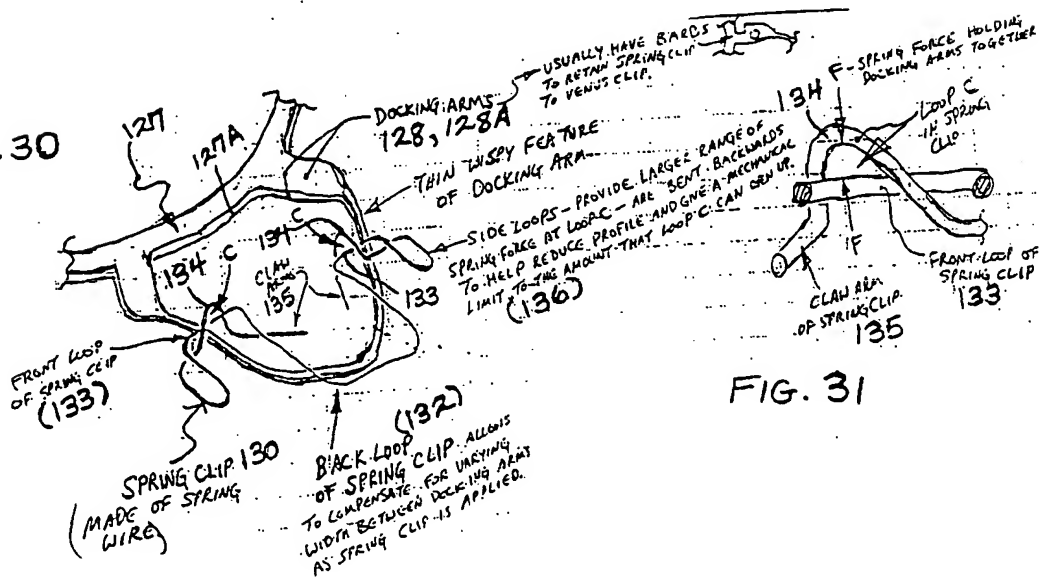 .30
127
127A
DOCKING ARMS
128, 128A
USUALLY HAVE BARBS
TO RETAIN SPRING CLIP
TO VENUS CLIP.
THIN WISPY FEATURE
OF DOCKING ARM
SIDE LOOPS - PROVIDE LARGER RANGE OF
SPRING FORCE AT LOOP C - ARE BENT BACKWARDS
TO HELP REDUCE PROFILE AND GIVE A MECHANICAL
LIMIT TO THE AMOUNT THAT LOOP C CAN OPEN UP.
(136)
134 C
134 C
CLAW
ARMS
135
133
FRONT LOOP
OF SPRING CLIP
(133)
SPRING CLIP 130
(MADE OF SPRING
WIRE)
(132)
BACK LOOP
OF SPRING CLIP ALLOWS
TO COMPENSATE FOR VARYING
WIDTH BETWEEN DOCKING ARMS
AS SPRING CLIP IS APPLIED.
F - SPRING FORCE HOLDING
DOCKING ARMS TOGETHER
134
LOOP C
IN SPRING
CLIP
F
FRONT LOOP OF
SPRING CLIP
133
CLAW ARM
OF SPRING CLIP
135
FIG. 31